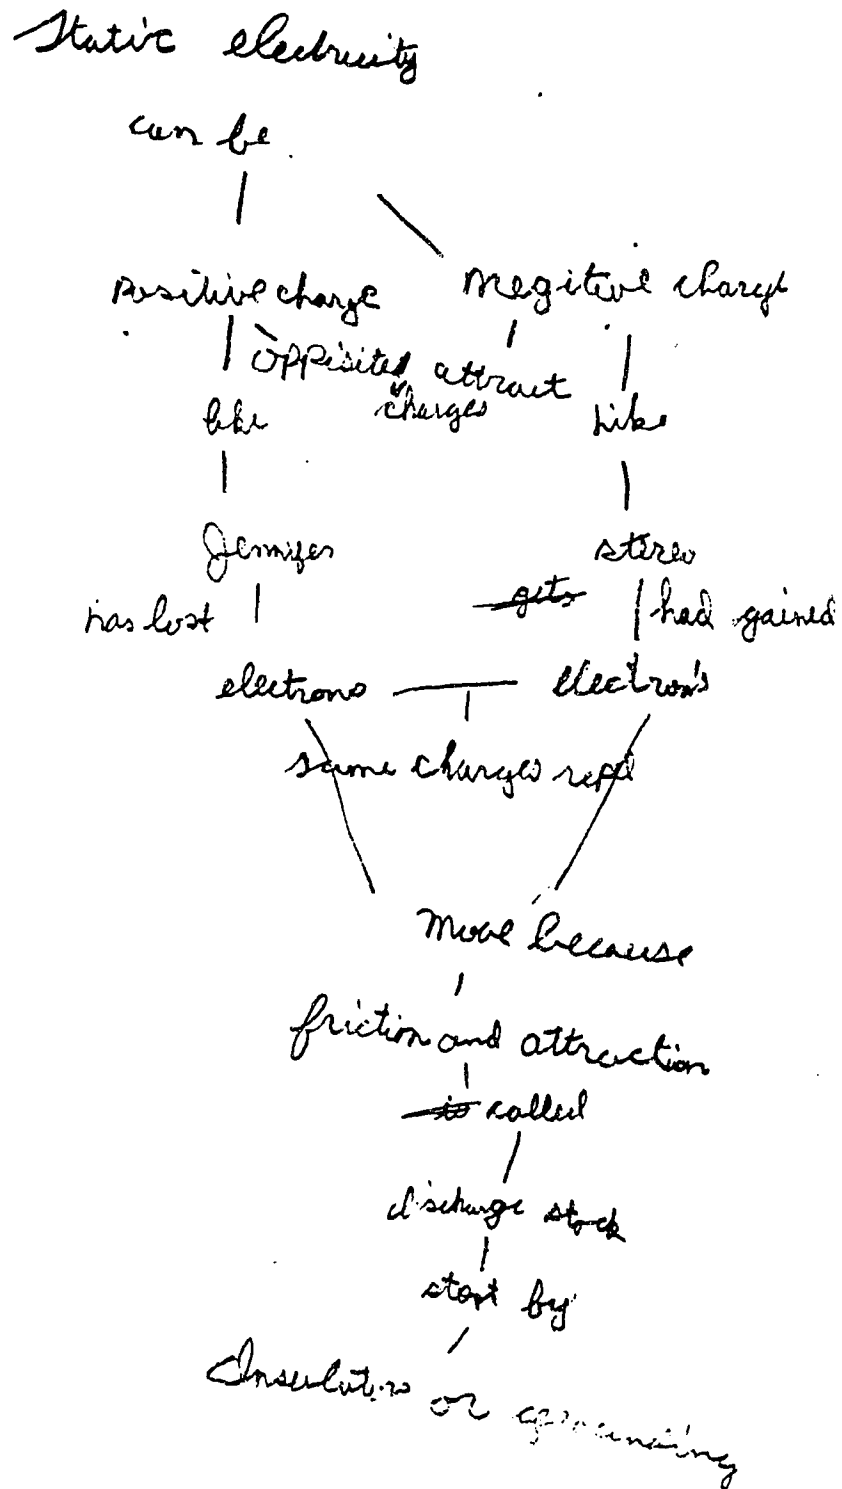 Static electricity
can be
Positive charge Negitive charge
oppisites attract
charges
like Like
Jennifer stereo
has lost gets had gained
electrons electron's
same charges repel
Move because
friction and attraction
is called
discharge stock
stopt by
Insulators or grounding